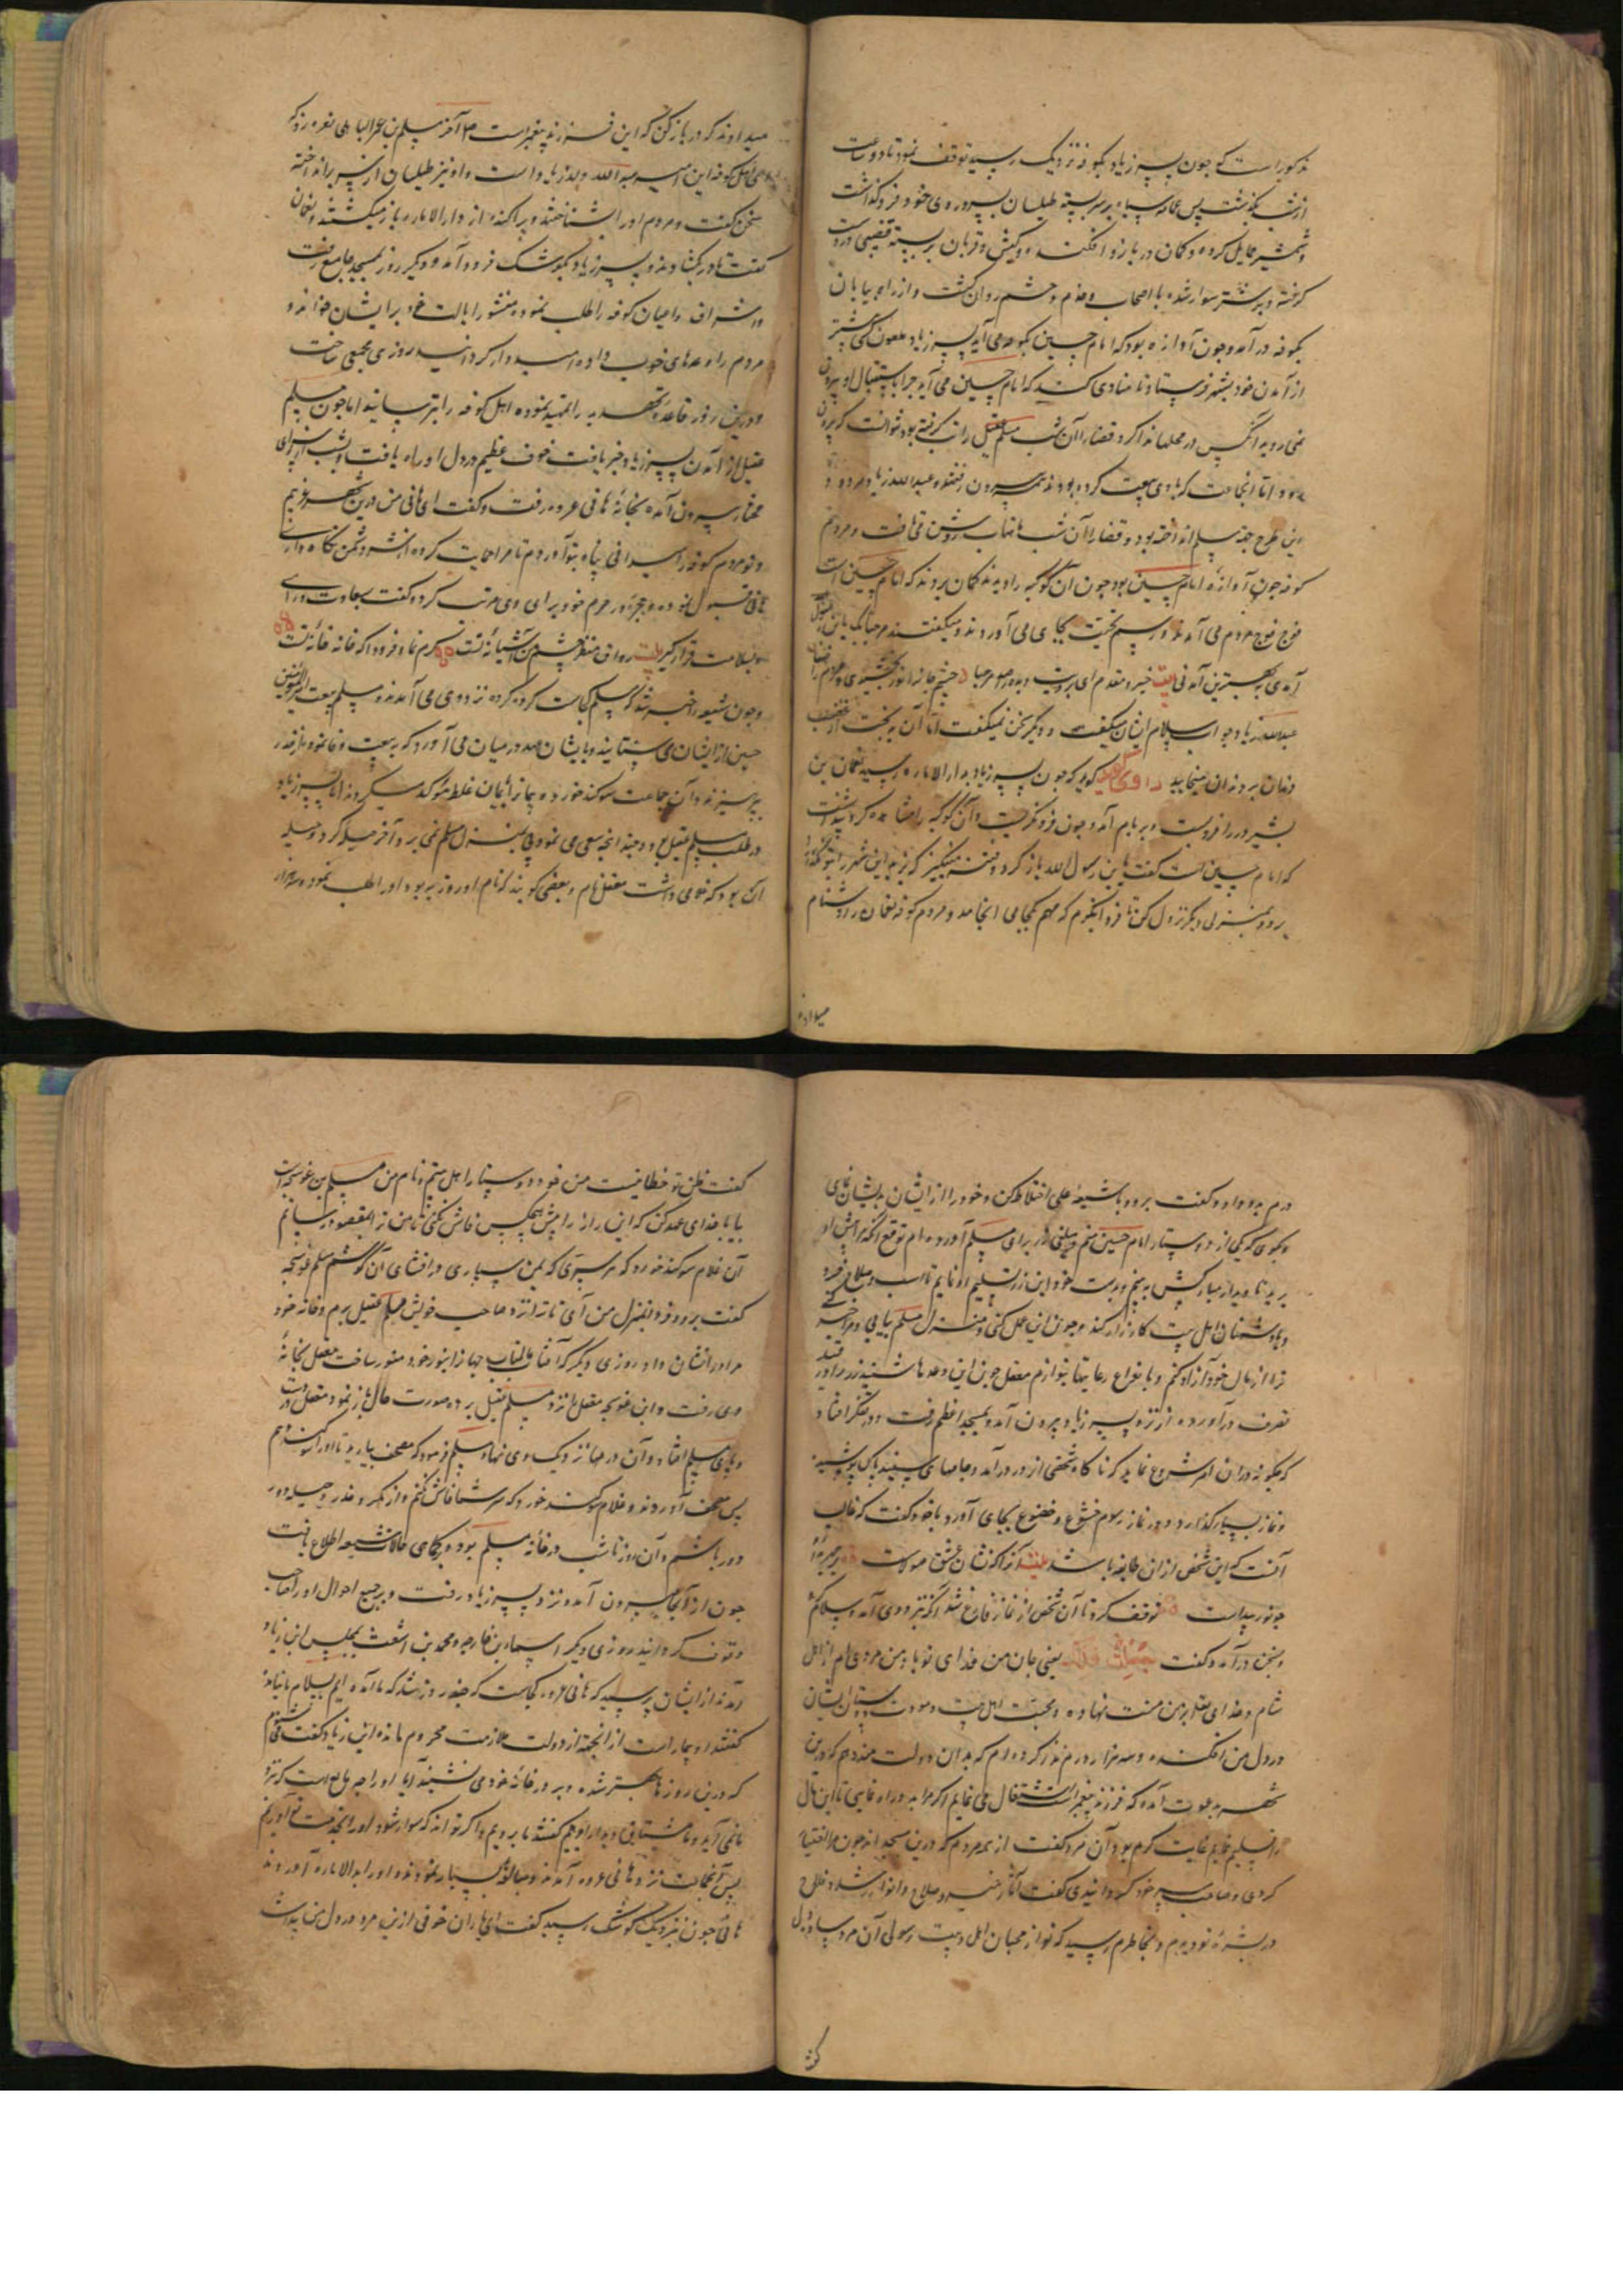 مذکور است که چون پسر زیاد بکوفه نزدیک رسید توقف نمود تا دو ساعت
از شب بگذشت پس عمامه سیاه بر سر بسته طیلسان بسر و روی خود فرو گذاشت
و شمشیر حمایل کرده و کمان در بازو افکنده و کیش و قربان بر بسته قضیبی در دست
گرفته و بر شتر سوار شده با اصحاب و خدم و حشم روان گشت و از راه بیابان
بکوفه در آمد و چون آوازه بود که امام حسین بکوفه می آید پسر زیاد ملعون کسی پیشتر
از آمدن خود بشهر فرستاد تا منادی کنند که امام حسین می آید چرا باستقبال او بیرون
نمی روید آنکس در محلها ندا کرد قضا را آن شب مسلم عقیل را تب گرفته بود نتوانست که بیرون
رود و اما آنجماعت که با وی بیعت کرده بودند همه بیرون رفتند و عبدالله زیاد
این طرح جهة مسلم انداخته بود و قضا را آن شب ماهتاب روشن می تافت و مردم
کوفه چون آوازه امام حسین بود چون آن کوکبه را دیدند گمان بردند که امام حسین است
فوج فوج مردم می آمدند و رسم تحیت بجای می آوردند و میگفتند مرحبا بک یا ابن رسول الله
آمدی به بهترین آمدنی بیت خیر مقدم ای برویت دیده را صد مرحبا چشم جانها نور بخشیدی و مردم را صفا
عبدالله زیاد جواب سلام ایشان میگفت و دیگر سخن نمیگفت اما آن بدبخت از غضب
دندان بر دندان میخایید راوی گوید که چون پسر زیاد بدار الاماره رسید نعمان بن
بشیر در را فرو بست و بر بام آمد و چون فرو نگریست و آن کوکبه را مشاهده کرد پنداشت
که امام حسین است گفت یا ابن رسول الله باز گرد و فتنه مینگیز که یزید این شهر را بتو نگذارد
برو و بمنزلی دیگر نزول کن تا فردا بنگرم که مهم بکجا می انجامد و مردم کوفه نعمان را دشنام
میدادند
میدادند که در باز کن که این فرزند پیغمبر است تا آخر مسلم بن عمر الباهلی نعره زد که
ای اهل کوفه این امیر عبدالله ولد زیاد است و او نیز طیلسان از سر برانداخته
سخن گفت و مردم او را بشناختند و پراکنده از دار الاماره باز میگشتند و نعمان
گفت تا در بگشادند و پسر زیاد بکوشک فرود آمد و دیگر روز بمسجد جامع رفت
و اشراف و اعیان کوفه را طلب نموده منشور ایالت خود بر ایشان خواند و
مردم را وعدهای خوب داده امیدوار گردانید روزی مجمعی ساخت
و در این روز قاعده تهدید را تمهید نموده اهل کوفه را بترسانید اما چون مسلم
عقیل از آمدن پسر زیاد خبر یافت خوف عظیم در دل او راه یافت و بشب از سرای
مختار بیرون آمده بخانه هانی عروه رفت و گفت ای هانی من درین شهر غریبم
و تو مردم کوفه را میدانی پناه بتو آوردم تا مرا حمایت کرده از شر دشمن نگاه داری
هانی قبول نموده و حجره در حرم خود برای وی مرتب کرد و گفت بسعادت درآی
و بسلامت قرار گیر بیت رواق منظر چشم من آشیانه تست کرم نما و فرود آ که خانه خانه تست
و چون شیعه را خبر شد که مسلم کجاست گروه گروه نزد وی می آمدند و مسلم بیعت امیر المؤمنین
حسین از ایشان می ستانید و با ایشان عهد در میان می آورد که به بیعت وفا نموده از غدر
بپرهیزند و آن جماعت سوگند خورده پیمانرا بایمان غلاظ مؤکد میکردند اما پسر زیاد
در طلب مسلم عقیل بود و چند آنچه سعی می نمود پی بمنزل مسلم نمی برد آخر حیله کرد و حیله
آن بود که غلامی داشت معقل نام و بعضی گویند که نام او روزبه بود او را طلب نمود و سه هزار
درم بدو داد و گفت برو و با شیعه علی اختلاط کن و خود را از ایشان بدیشان نمای
و بگوی که یکی از دوستار امام حسین منم و مبلغی زر برای مسلم آورده ام توقع آنکه مرا پیش او
برید تا دیدار مبارکش به بینم و بدست خود این زر تسلیم او نمایم تا اسب و سلاح خرد
و با دشمنان اهل بیت کارزار کند و چون این عمل کنی و منزل مسلم بیابی و مرا خبر کنی
ترا از مال خود آزاد کنم و بانواع رعایتها بنوازم معقل چون این وعدها شنید زر را در قید
تصرف درآورده از نزد پسر زیاد بیرون آمد و بمسجد اعظم رفت و در تفکر افتاد
که چگونه در آن امر شروع نماید که ناگاه شخصی از در درآمد و جامهای سپید پاک پوشیده
و نماز بسیار گذارد و در نماز رسوم خشوع و خضوع بجای آورد با خود گفت که غالب
آنست که این شخص از آن طایفه باشد بیت آنرا که نشان عشق مولاست بر چهره او
چو نور پیداست توقف کرد تا آن شخص از نماز فارغ شد آنگه نزد وی آمد و سلام کرد
و سخن درآمد و گفت جعلت فداک یعنی جان من فدای تو باد من مردی ام از اهل
شام و خدای تعالی بر من منت نهاده و محبت اهل بیت و مودت دوستان ایشان
در دل من افکنده و سه هزار درم نذر کرده ام که بدان دولت مند دهم که درین
شهر بدعوت آمده که فرزند پیغمبر است اشتغال می نماید اگر مرا بدو راه نمایی تا این مال
را تسلیم نمایم غایت کرم بود آن مرد گفت از همه مردم که درین مسجد اند چون مرا اختیار
کردی و صاحب سر خود گردانیدی گفت آثار خیر و صلاح و انوار رشد و فلاح
در بشره تو دیدم و بخاطرم رسید که تو از محبان اهل بیت رسولی آن مرد ساده دل
گفت
گفت ظن تو خطا نیست من خود دوستار اهل بیتم و نام من مسلم بن عوسجه است
بیا با خدای عهد کن که این راز را پیش هیچکس فاش نکنی تا من ترا بمقصود رسانم
آن غلام سوگند خورد که هر سری که بمن سپاری در افشای آن نکوشم مسلم عوسجه
گفت برو و فردا بمنزل من آی تا ترا نزد صاحب خویش مسلم عقیل برم و خانه خود
مر او را نشان داد روزی دیگر که آفتاب عالمتاب جهانرا بنور خود منور ساخت معقل بخانه
وی رفت و ابن عوسجه معقل را نزد مسلم عقیل برده صورت حال باز نمود معقل در دست
و پای مسلم افتاد و آن درمها نزدیک وی نهاد مسلم فرمود که مصحف بیارید تا او را سوگند دهم
پس مصحف آوردند و غلام سوگند خورد که سر شما فاش نکنم و از مکر و غدر و حیله دور
دور باشم و آن روز تا شب در خانه مسلم بود و بر تمامی حالات شیعه اطلاع یافت
چون از آنجا بیرون آمد و نزد پسر زیاد رفت و بر جمیع احوال او را صاحب
وقوف گردانید روزی دیگر اسماء بن خارجه و محمد بن اشعث بمجلس ابن زیاد
آمدند از ایشان پرسید که هانی عروه کجاست که چند روز شد که ما آمده ایم بسلام ما نیامد
گفتند او بیمار است از انجهة از دولت ملازمت محروم مانده ابن زیاد گفت می شنوم
که درین روزها بهتر شده و بر در خانه خود می نشیند آیا او را چه مانع است که نزد
ما نمی آید و ما مشتاق دیدار اوییم گفتند ما برویم و اگر تواند که سوار شود او را بخدمت تو آوریم
پس آنجماعت نزد هانی عروه آمدند و مبالغه بسیار نمودند و او را بدار الاماره آوردند
هانی چون نزدیک کوشک رسید گفت ای یاران خوفی ازین مرد در دل من پیداست